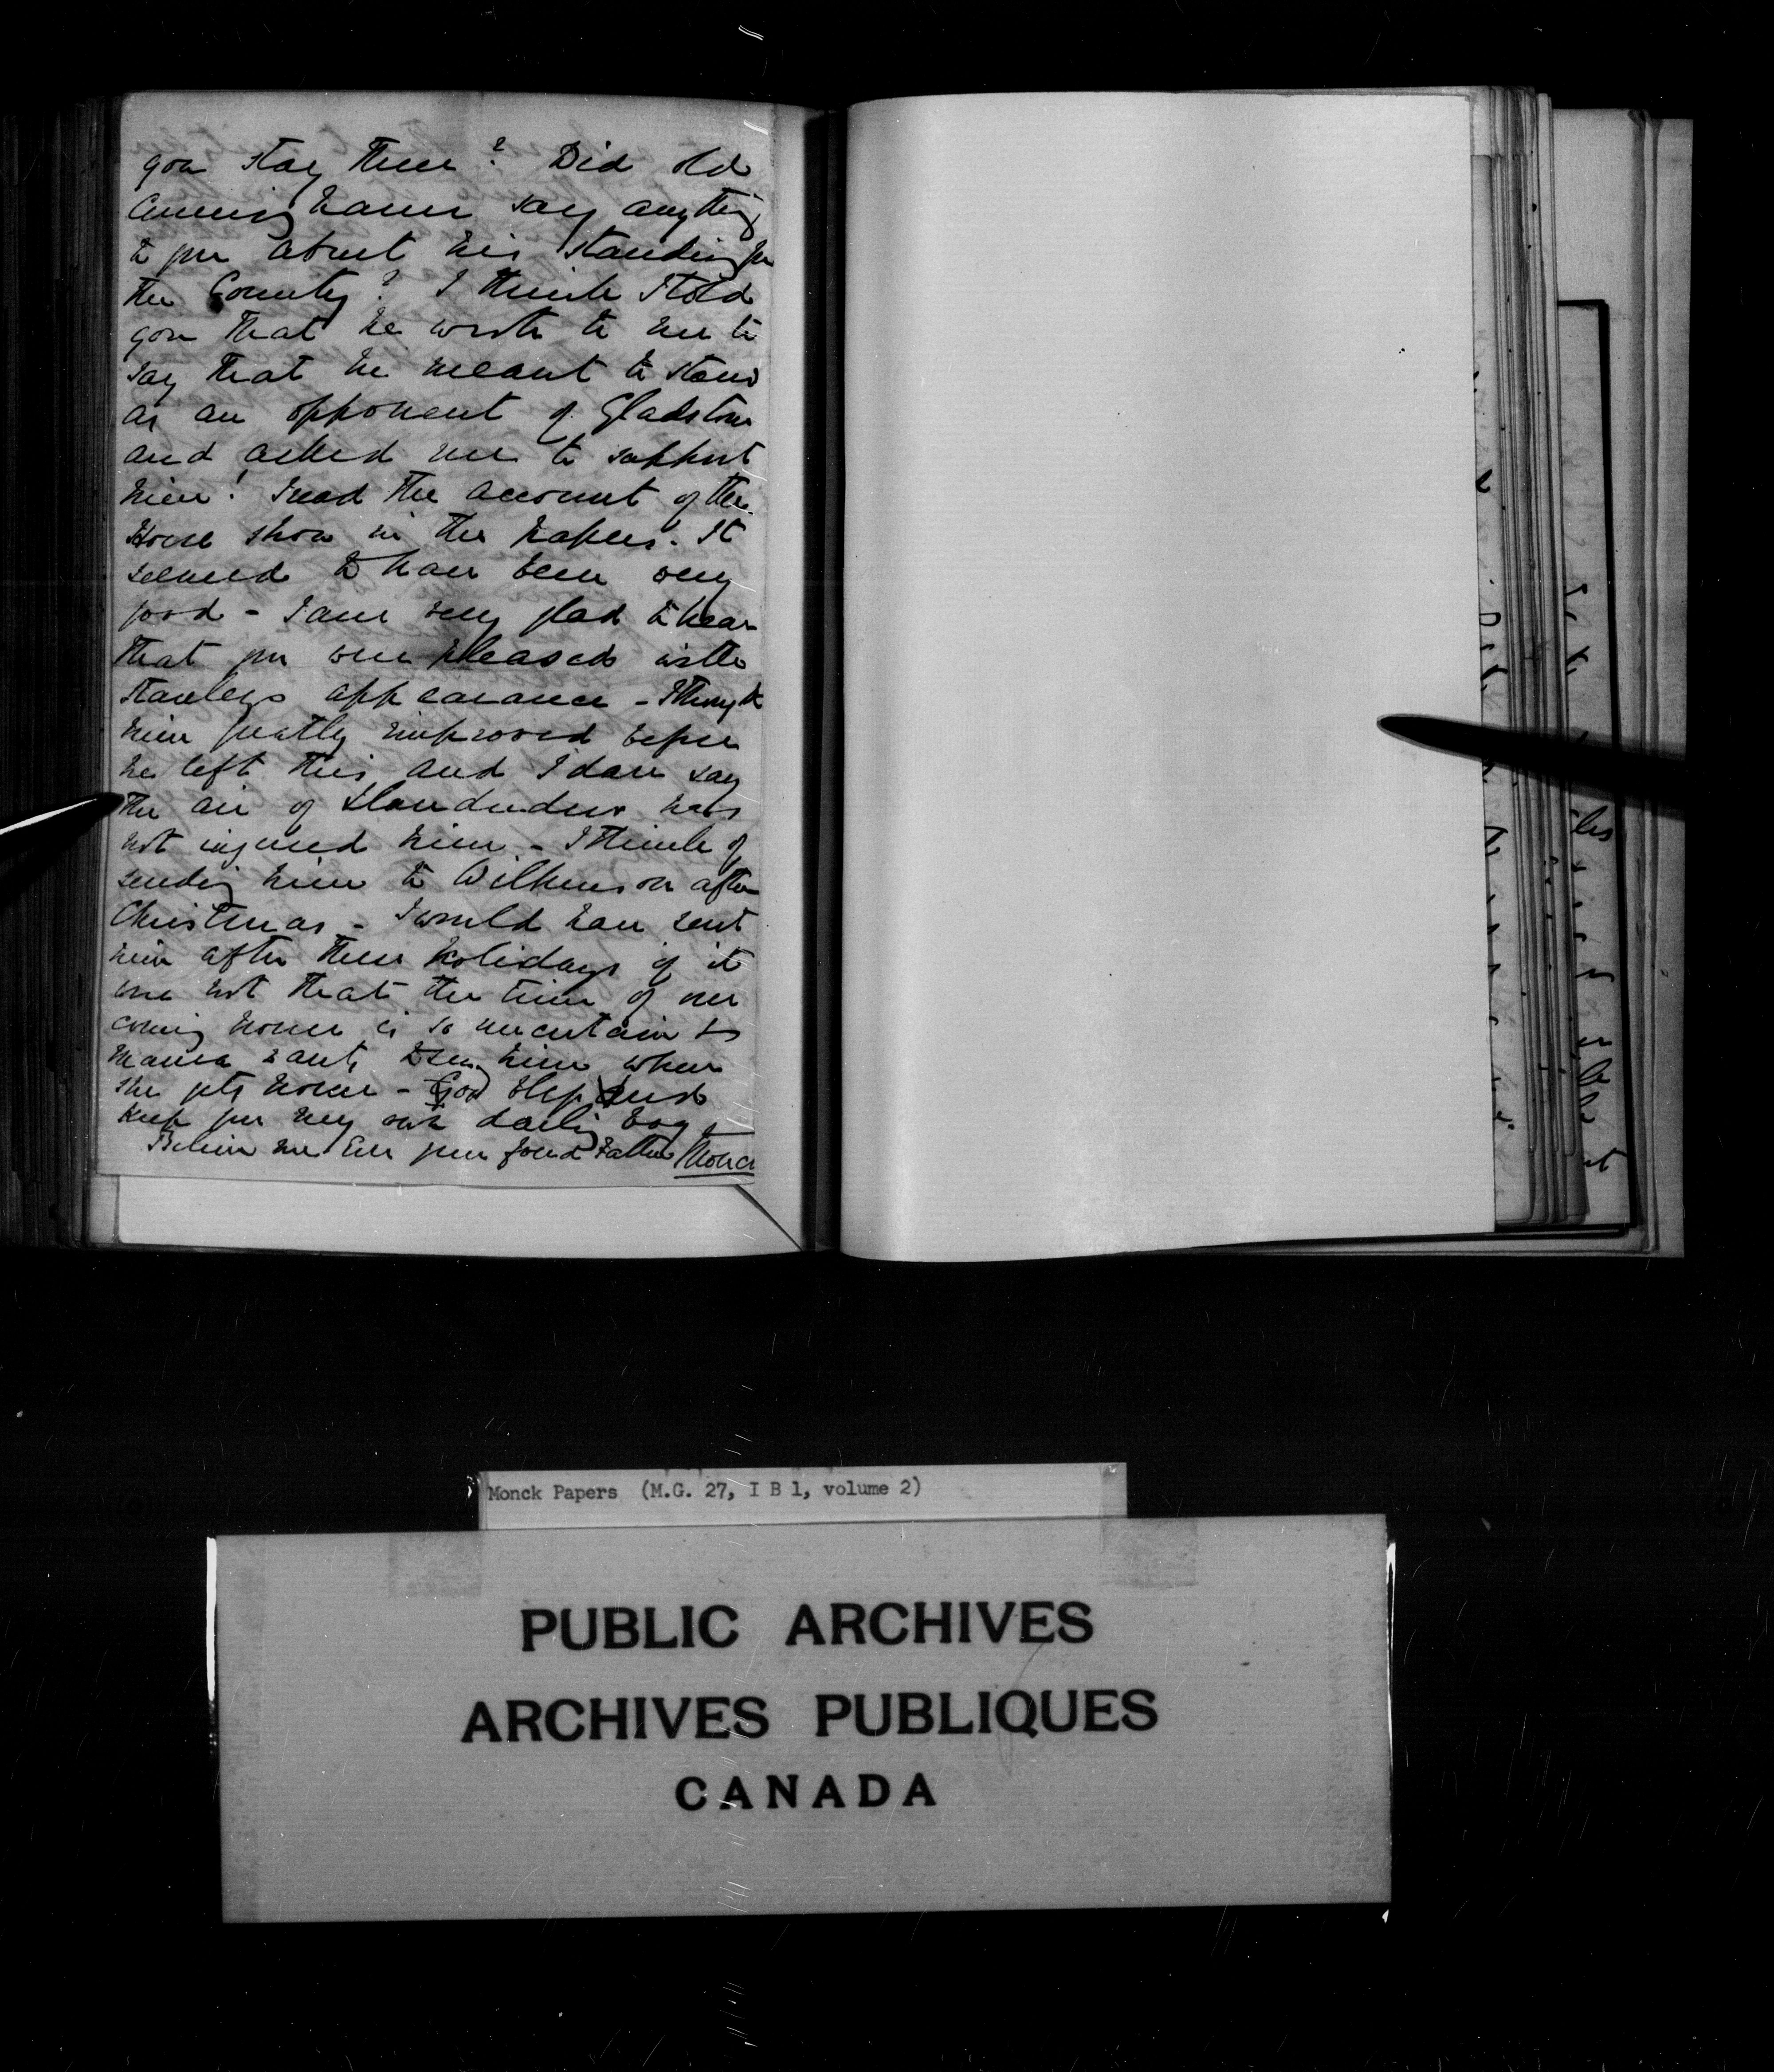 you stay there? Did old
Cunningham say anything
to you about his standing for
the County? I think I told
you that he wrote to me to
say that he meant to stand
as an opponent of Gladstone
and asked me to support
him! I read the account of the
Horse show in the papers. It
seemed to have been very
good - I am very glad to hear
that you were pleased with
Stanleys appearance - I thought
him greatly improved before
he left this and I dare say
the air of Llandudno has
not injured him - I think of
sending him to Wilkinson after
Christmas - I would have sent
him after these holidays if it
were not that the time of our
coming home is so uncertain &
Mama wants to see him when
she gets home - God bless and
keep you my own darling boy
Believe me Ever your fond Father Monck
Monck Papers (M.G. 27, I B 1, volume 2)
PUBLIC ARCHIVES
ARCHIVES PUBLIQUES
CANADA